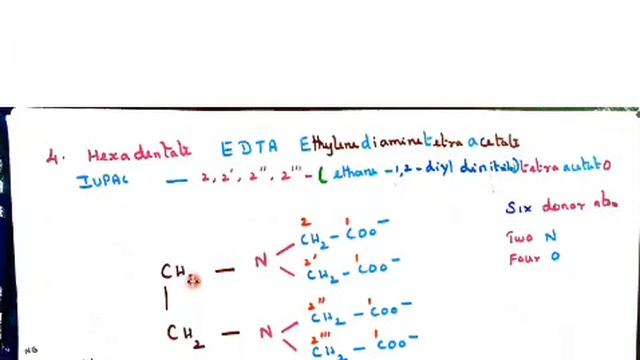 4. Hexadentate EDTA Ethylenediaminetetraacetate
IUPAC — 2, 2', 2'', 2''' - ( ethane -1,2-diyl dinitrilo) tetra acetato
Six donor
Two N
Four O
2 1
CH2 - COO-
2' 1
CH2 - COO-
CH2 — N
CH2 — N
2'' 1
CH2 - COO-
2''' 1
CH2 - COO-
NG